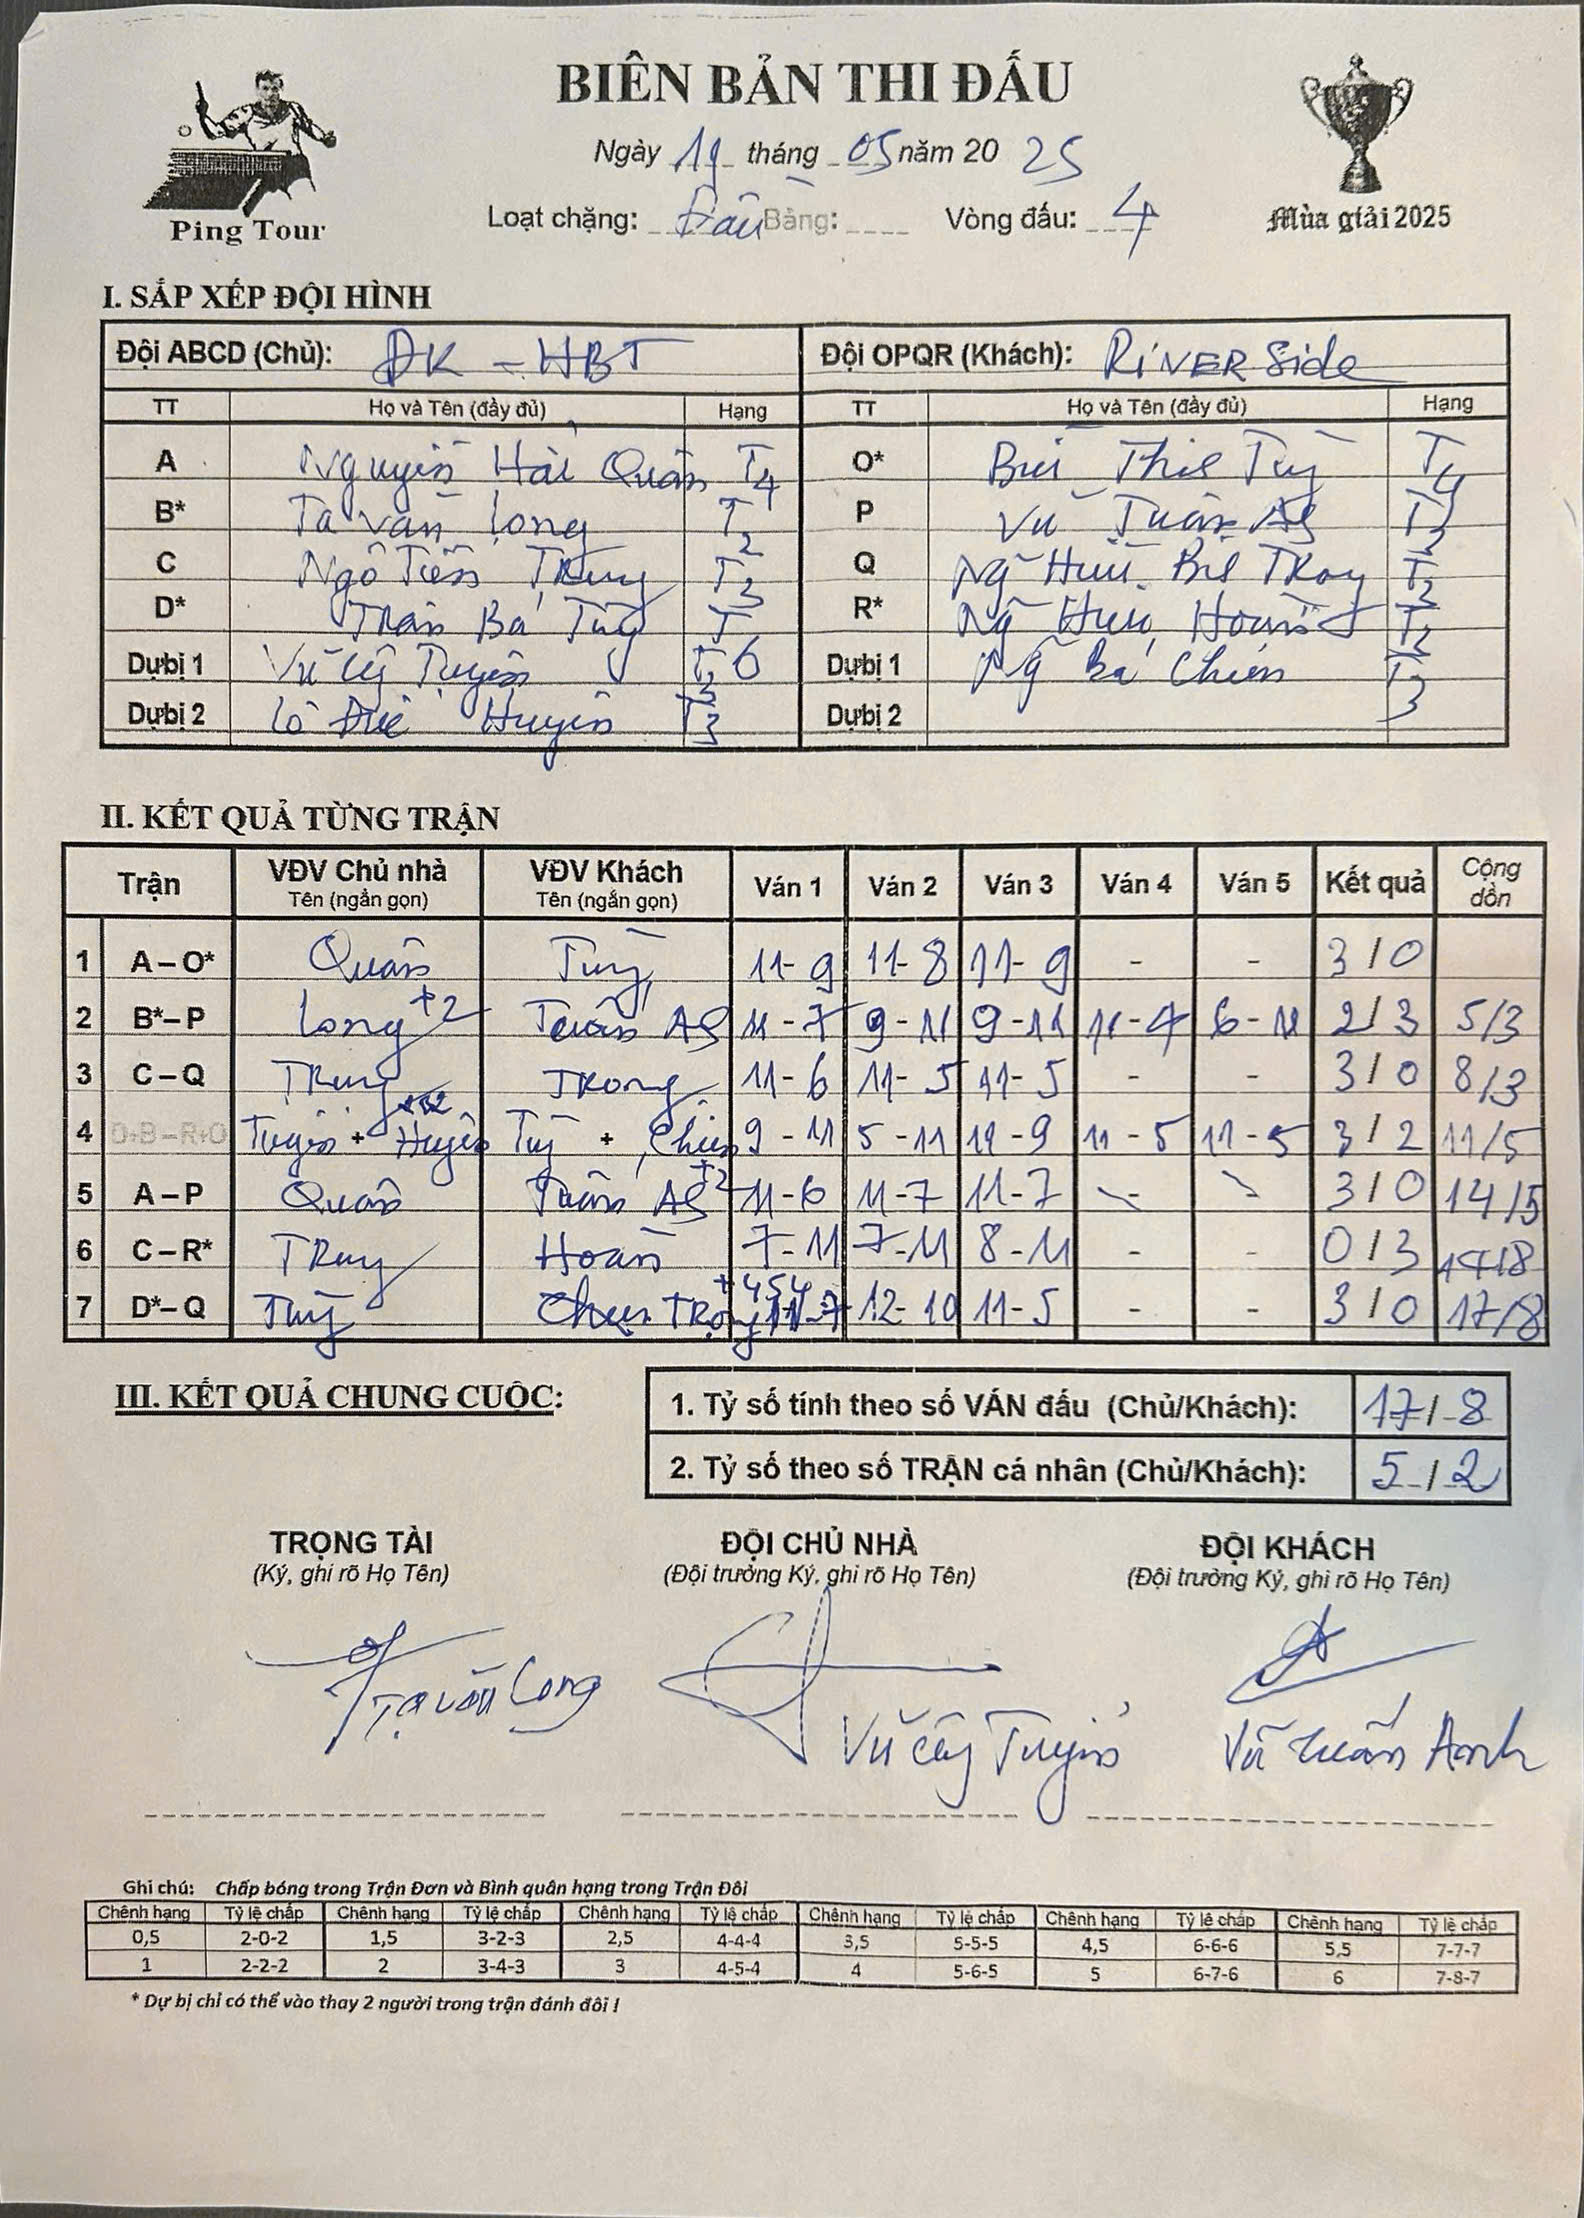 BIÊN BẢN THI ĐẤU
Ngày 19 tháng 05 năm 20 25
Ping Tour
Loạt chặng: Đấu Bảng: Vòng đấu: 4
Mùa giải 2025
I. SẮP XẾP ĐỘI HÌNH
Đội ABCD (Chủ): ĐK - HBT Đội OPQR (Khách): RIVERSide
TT Họ và Tên (đầy đủ) Hạng TT Họ và Tên (đầy đủ) Hạng
A Nguyễn Hải Quân T4 O* Bùi T4
B* Tạ Văn Long T2 P Vũ Tuấn AS
C Ngô Tiến Trung T3 Q Ng Hữu Trọng T2
D* Trần Bá Tùng R* Ng Hữu Hoàn T2
Dự bị 1 Vũ Tuyên Dự bị 1 Ng Bá Chiến T3
Dự bị 2 Lê Đức Huyên T3 Dự bị 2
II. KẾT QUẢ TỪNG TRẬN
Trận VĐV Chủ nhà VĐV Khách Ván 1 Ván 2 Ván 3 Ván 4 Ván 5 Kết quả Cộng dồn
Tên (ngắn gọn) Tên (ngắn gọn)
1 A – O* Quân Tùng 11- 9 11- 8 11- 9 - - 3 / 0
2 B* – P Long +2 Tuấn AS 11 - 7 9 - 11 9 - 11 11 - 4 6 - 11 2 / 3 5/3
3 C – Q Trung Trọng 11- 6 11- 5 11- 5 - - 3 / 0 8/3
4 D+B – R+O Tuyên + Huyên Tùng + Chiến 9 - 11 5 - 11 11 - 9 11 - 5 11 - 5 3 / 2 11/5
5 A – P Quân Tuấn AS +2 11-6 11-7 11-7 - - 3 / 0 14/5
6 C – R* Trung Hoàn 7-11 7-11 8-11 - - 0 / 3 14/8
7 D* – Q Tùng Trọng +454 11-7 12-10 11-5 - - 3 / 0 17/8
III. KẾT QUẢ CHUNG CUỘC:
1. Tỷ số tính theo số VÁN đấu (Chủ/Khách): 17 / 8
2. Tỷ số theo số TRẬN cá nhân (Chủ/Khách): 5 / 2
TRỌNG TÀI ĐỘI CHỦ NHÀ ĐỘI KHÁCH
(Ký, ghi rõ Họ Tên) (Đội trưởng Ký, ghi rõ Họ Tên) (Đội trưởng Ký, ghi rõ Họ Tên)
Tạ Văn Long Vũ Tuyên Vũ Tuấn Anh
Ghi chú: Chấp bóng trong Trận Đơn và Bình quân hạng trong Trận Đôi
Chênh hạng Tỷ lệ chấp Chênh hạng Tỷ lệ chấp Chênh hạng Tỷ lệ chấp Chênh hạng Tỷ lệ chấp Chênh hạng Tỷ lệ chấp Chênh hạng Tỷ lệ chấp
0,5 2-0-2 1,5 3-2-3 2,5 4-4-4 3,5 5-5-5 4,5 6-6-6 5,5 7-7-7
1 2-2-2 2 3-4-3 3 4-5-4 4 5-6-5 5 6-7-6 6 7-8-7
* Dự bị chỉ có thể vào thay 2 người trong trận đánh đôi !